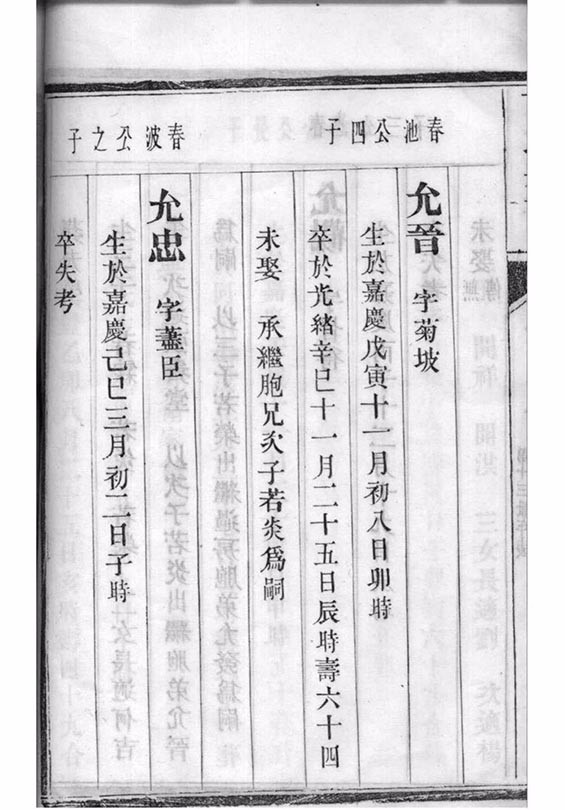 春池公四子
允晉　字菊坡
生於嘉慶戊寅十一月初八日卯時
卒於光緒辛巳十一月二十五日辰時壽六十四
未娶　承繼胞兄次子若炎爲嗣
春波公之子
允忠　字藎臣
生於嘉慶己巳三月初二日子時
卒失考